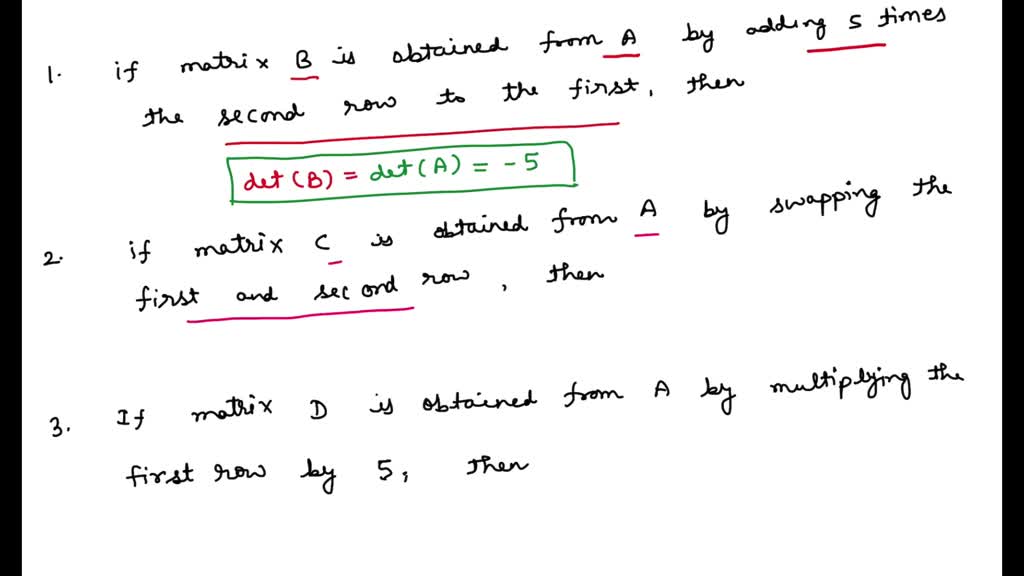 1. if matrix B is obtained from A by adding 5 times
the second row to the first, then
det(B) = det(A) = -5
2. if matrix C is obtained from A by swapping the
first and second row, then
3. If matrix D is obtained from A by multiplying the
first row by 5, then